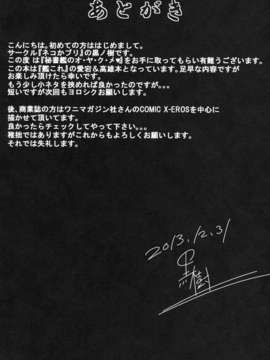 あとがき
こんにちは。初めての方ははじめまして。
サークル『ネコかブリ』の黒ノ樹です。
この度は『秘書艦のオ・ヤ・ク・メ♥』をお手に取ってもらい有難うございます。
この本は『艦これ』の愛宕&高雄本となっています。足早な内容ですが
お楽しみ頂けたら幸いです。
もう少し小ネタを挟めれば良かったのですが。。。
短いですが次回もヨロシクお願いします。
後、商業誌の方はワニマガジン社さんのCOMIC X-EROSを中心に
描かせて頂いてます。
良かったらチェックしてやって下さい。。。
稚拙ではありますがこれからもよろしくお願いします。
それでは失礼します。
2013.12.31